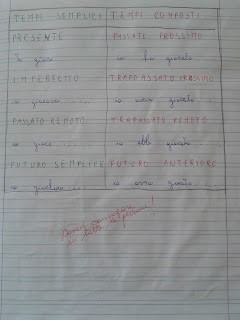 TEMPI SEMPLICI TEMPI COMPOSTI
PRESENTE PASSATO PROSSIMO
Io gioco io ho giocato
IMPERFETTO TRAPASSATO PROSSIMO
io giocavo...... io avevo giocato...
PASSATO REMOTO TRAPASSATO REMOTO
io giocai...... io ebbi giocato....
FUTURO SEMPLICE FUTURO ANTERIORE
io giocherò... io avrò giocato....